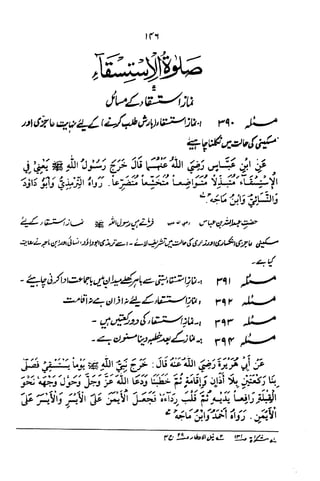 ۱۴۶
صَلٰوۃُ الْاِسْتِسْقَآءِ
نماز استسقاء کے مسائل
مسئلہ ۳۹۰ ۱۔ نماز استسقاء (بارش طلب کرنے) کے لئے نہایت عاجزی اور
مسکینی کی حالت میں نکلنا چاہئے
عَنِ ابْنِ عَبَّاسٍ رَضِيَ اللهُ عَنْهُمَا قَالَ خَرَجَ رَسُولُ اللهِ ﷺ يَعْنِي فِي
الْاِسْتِسْقَآءِ مُتَبَذِّلًا مُتَوَاضِعًا مُتَخَشِّعًا مُتَضَرِّعًا. رَوَاهُ التِّرْمِذِيُّ وَأَبُو دَاوُدَ
وَالنَّسَائِيُّ وَابْنُ مَاجَهْ
حضرت عبداللہ بن عباس فرماتے ہیں رسول اللہ ﷺ نماز استسقاء کے لئے
مسکینی عاجزی انکساری اور زاری کی حالت میں تشریف لائے ۔ اسے ترمذی ابو داؤد نسائی اور ابن ماجہ نے روایت
کیا ہے۔
مسئلہ ۳۹۱ ۱۔ نماز استسقاء بستی سے باہر کھلے میدان میں باجماعت ادا کرنی چاہئے ۔
مسئلہ ۳۹۲ ۱۔ نماز استسقاء کے لئے نہ اذان ہے نہ اقامت
مسئلہ ۳۹۳ ۱۔ نماز استسقاء کی دو رکعتیں ہیں ۔
مسئلہ ۳۹۴ ۱۔ نماز کے بعد خطبہ دینا مسنون ہے ۔
عَنْ أَبِي هُرَيْرَةَ رَضِيَ اللهُ عَنْهُ قَالَ: خَرَجَ نَبِيُّ اللهِ ﷺ يَوْماً يَسْتَسْقِي فَصَلَّى
بِنَا رَكْعَتَيْنِ بِلَا أَذَانٍ وَإِقَامَةٍ ثُمَّ خَطَبَنَا وَدَعَا اللهَ عَزَّ وَجَلَّ وَحَوَّلَ وَجْهَهُ نَحْوَ
الْقِبْلَةِ رَافِعاً يَدَيْهِ ثُمَّ قَلَبَ رِدَاءَهُ فَجَعَلَ الْأَيْمَنَ عَلَى الْأَيْسَرِ وَالْأَيْسَرَ عَلَى
الْأَيْمَنِ. رَوَاهُ أَحْمَدُ وَابْنُ مَاجَهْ